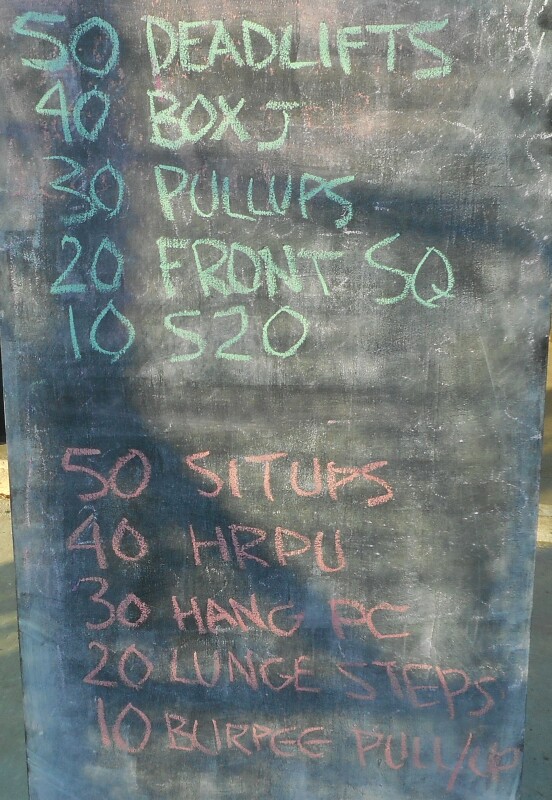 50 DEADLIFTS
40 BOX J
30 PULLUPS
20 FRONT SQ
10 S2O
50 SITUPS
40 HRPU
30 HANG PC
20 LUNGE STEPS
10 BURPEE PULL/UP